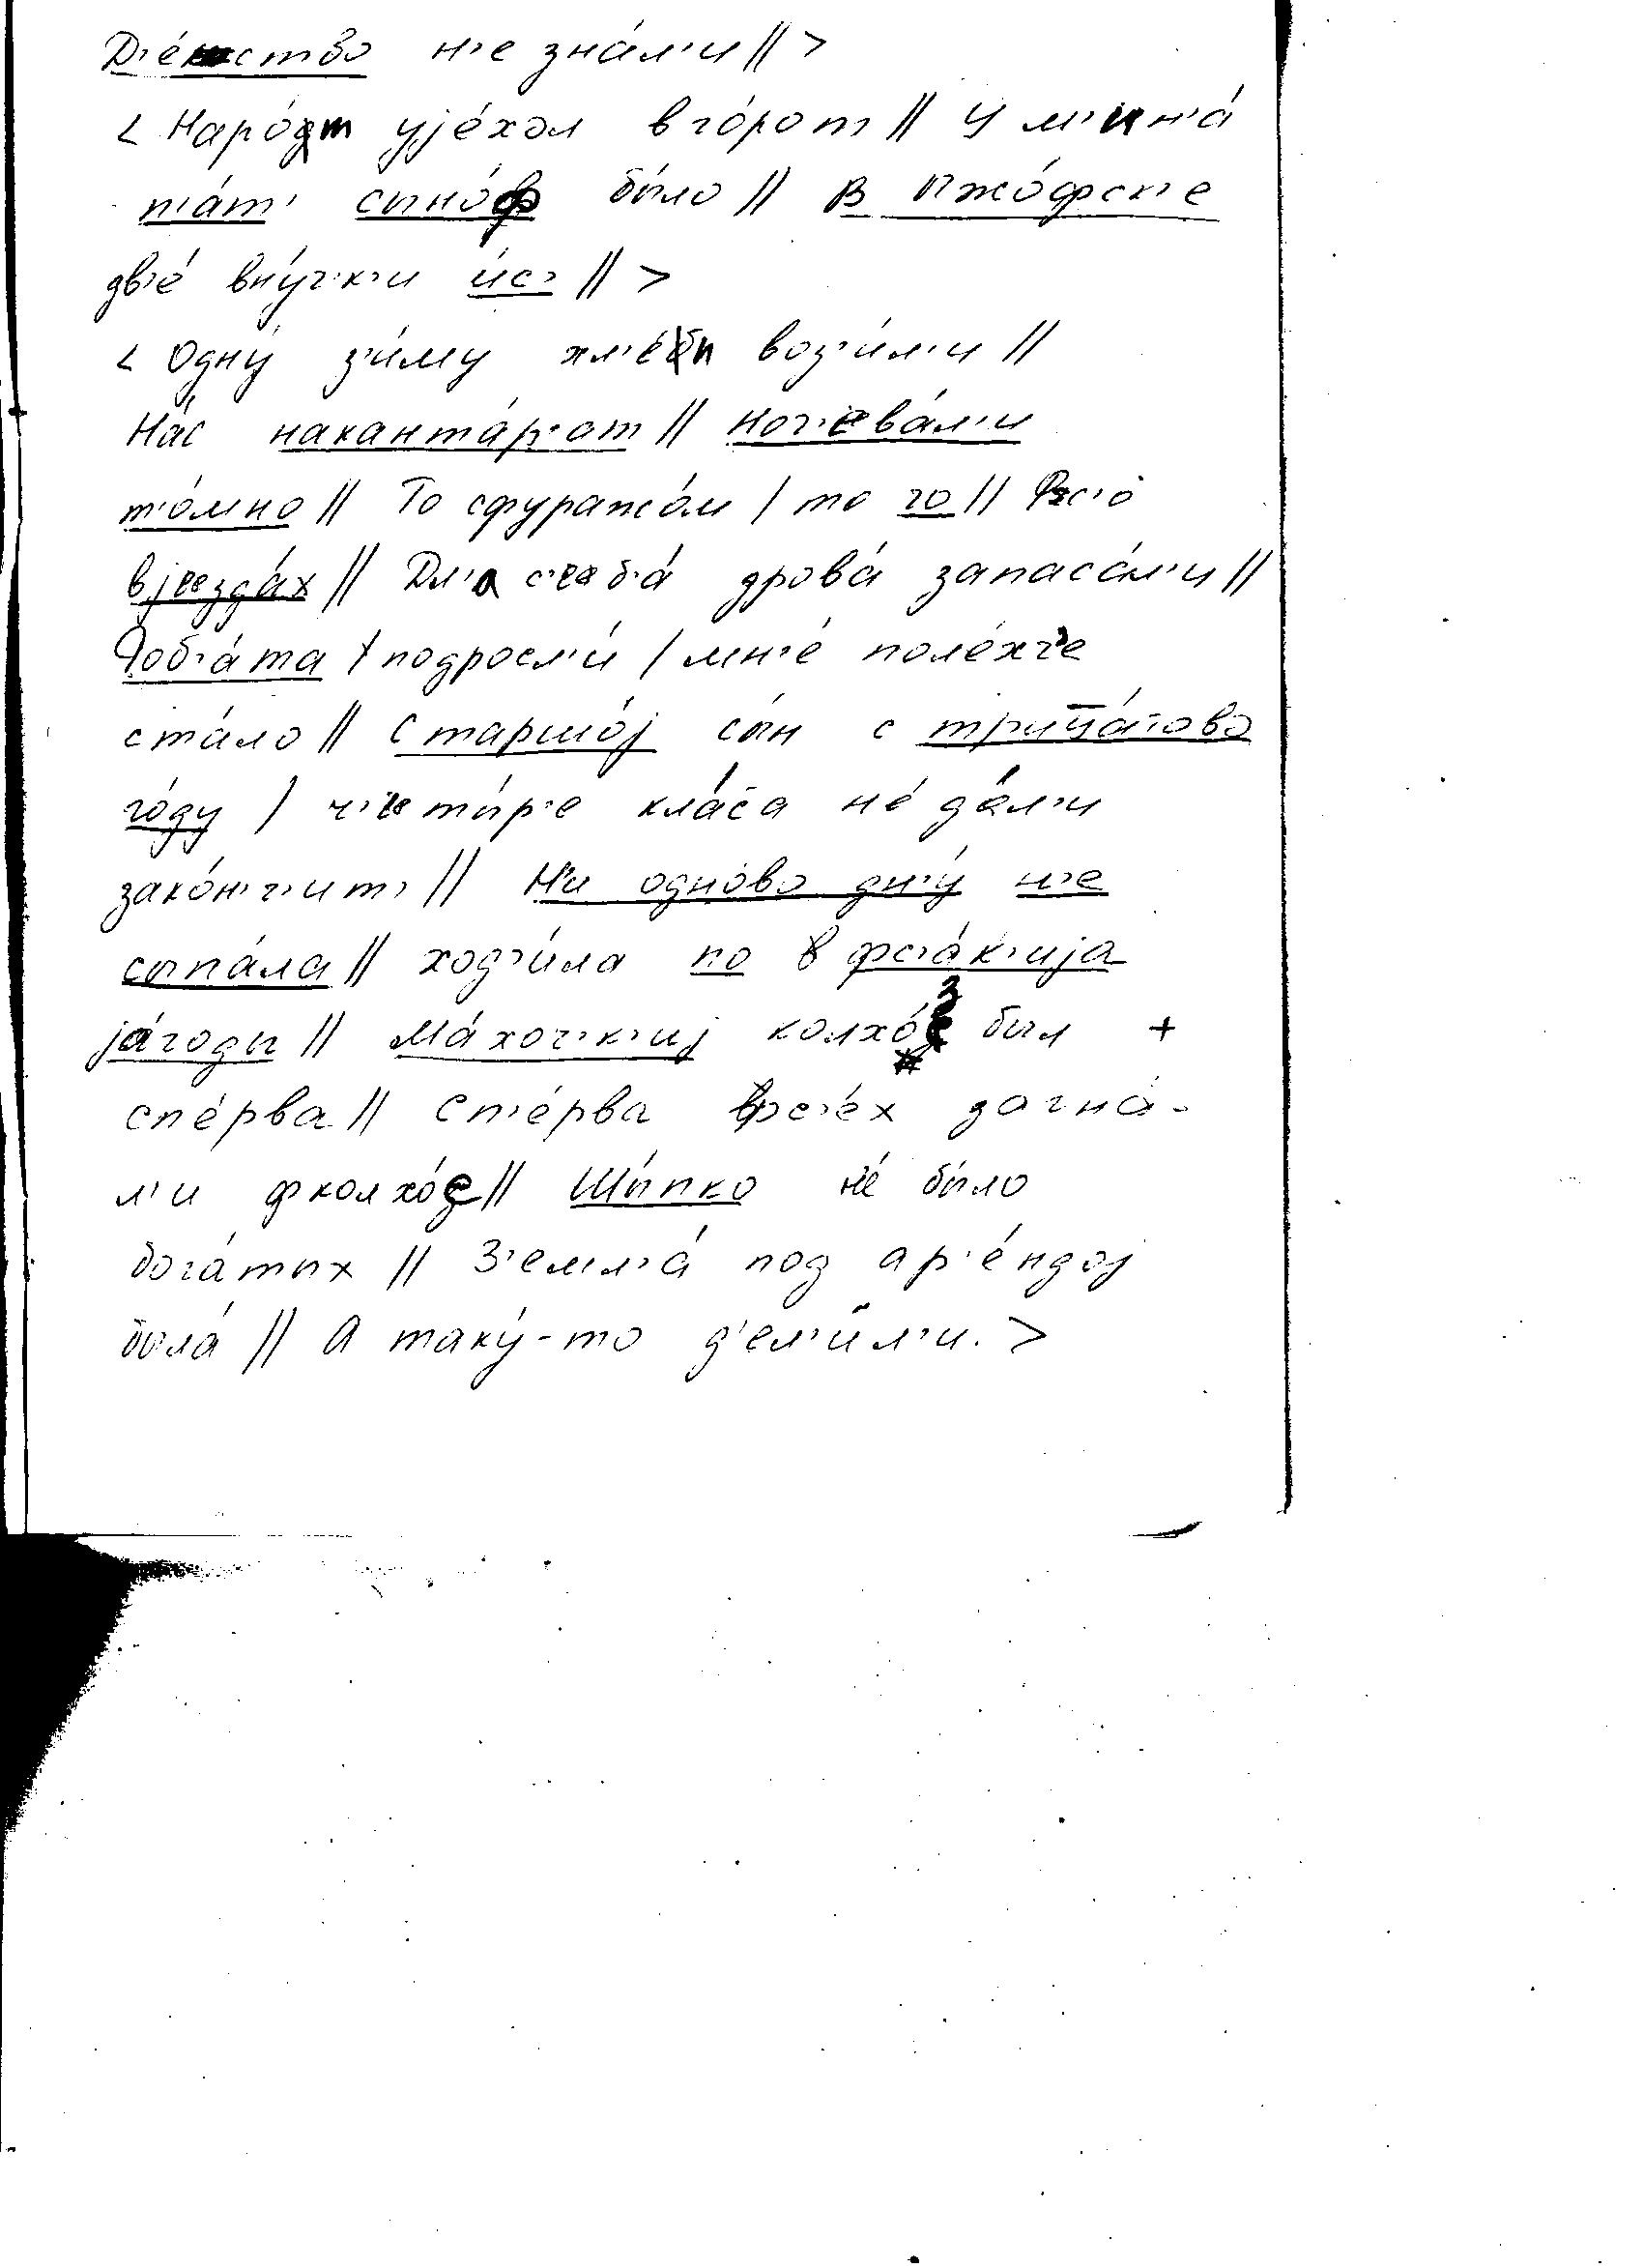 Д'е́тство н'е зна́л'и // >
< Наро́т ује́хал в го́рот // У м'ин'а́
п'а́т' сыно́ф бы́ло // В Ижо́фск'е
дв'е́ вну́ч'к'и и́с' // >
< Одну́ з'и́му хл'е́бы воз'и́л'и //
На́с накантар'ат // ноч'ева́л'и
т'о́мно // То сфуражо́м / то го // Фс'о́
в језда́х // Дл'а с'еб'а́ дрова́ запаса́л'и //
Роб'а́та / подросл'и́ / мн'е́ поле́хч'е
ста́ло // Старшо́ј сы́н с трицатово
го́ду / ч'еты́р'е кла́са не́ да́л'и
зако́н'ч'ит' // Н'и одново дн'у́ н'е
сыпа́ла // ход'и́ла по в фс'а́к'ија
ја́годы // Ма́хоч'к'иј колхо́з был +
спе́рва // Сп'е́рва фс'е́х загна́-
л'и фколхо́с // Шы́пко не́ бы́ло
бога́тых // З'емл'а́ под ар'е́ндој
была́ // А таку́-то д'ел'и́л'и. >